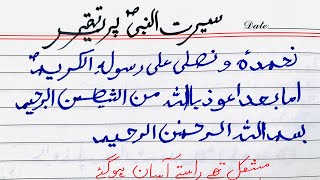 سیرت النبیؐ پر تقریر
Date
نحمدہٗ و نصلی علی رسولہِ الکریم
اما بعد اعوذ باللہ من الشیطٰن الرجیم
بسم اللہ الرحمٰن الرحیم
مشکل تھے راستے آسان ہوگئے